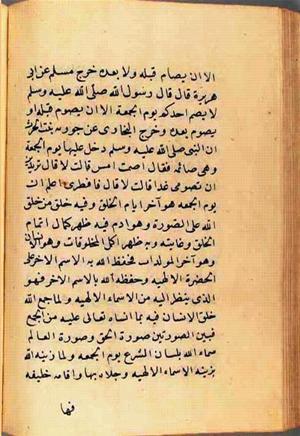 الا ان يصام قبله ولا بعده خرج مسلم عن ابى
هريرة قال قال رسول الله صلى الله عليه وسلم
لا يصم احدكم يوم الجمعة الا ان يصوم قبله او
يصوم بعده وخرج البخارى عن جويرية بنت الحرث
ان النبى صلى الله عليه وسلم دخل عليها يوم الجمعة
وهى صائمة فقال اصمت امس قالت لا قال تريدين
ان تصومى غدا قالت لا قال فافطرى اعلم ان
يوم الجمعه هو آخر ايام الخلق وفيه خلق من خلق
الله على الصورة وهو ادم فيه ظهر كمال اتمام
الخلق وغايته وبه ظهر اكمل المخلوقات وهو الانسان
وهو آخر المولدات فحفظ الله به الاسم الاخر على
الحضرة الالهية وحفظه الله بالاسم الاخر فهو
الذى ينظر اليه من الاسماء الالهية ولما جمع الله
خلق الانسان فيه بما انشاه تعالى عليه من الجمع
فبين الصورتين صورة الحق وصورة العالم
سماه الله بلسان الشرع يوم الجمعه ولما زينه الله
بزينة الاسماء الالهيه وجلاه بها واقامه خليفه
فيها